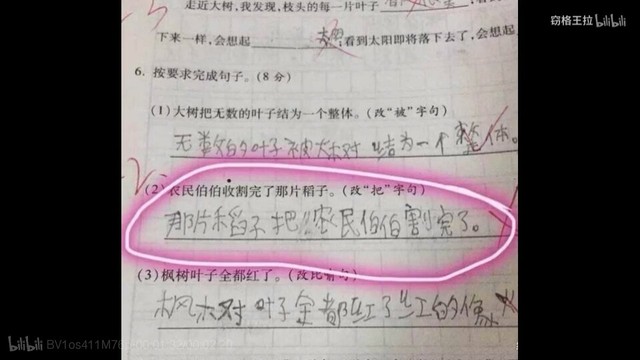 走近大树,我发现,枝头的每一片叶子
窃格王拉 bilibili
下来一样,会想起
看到太阳即将落下去了,会想起
6. 按要求完成句子。(8 分)
(1)大树把无数的叶子结为一个整体。(改“被”字句)
无数的叶子被大树结为一个整体。
(2)农民伯伯收割完了那片稻子。(改“把”字句)
那片稻子把农民伯伯割完了。
(3)枫树叶子全都红了。(改比喻句)
枫树叶子全都红了红的像
bilibili